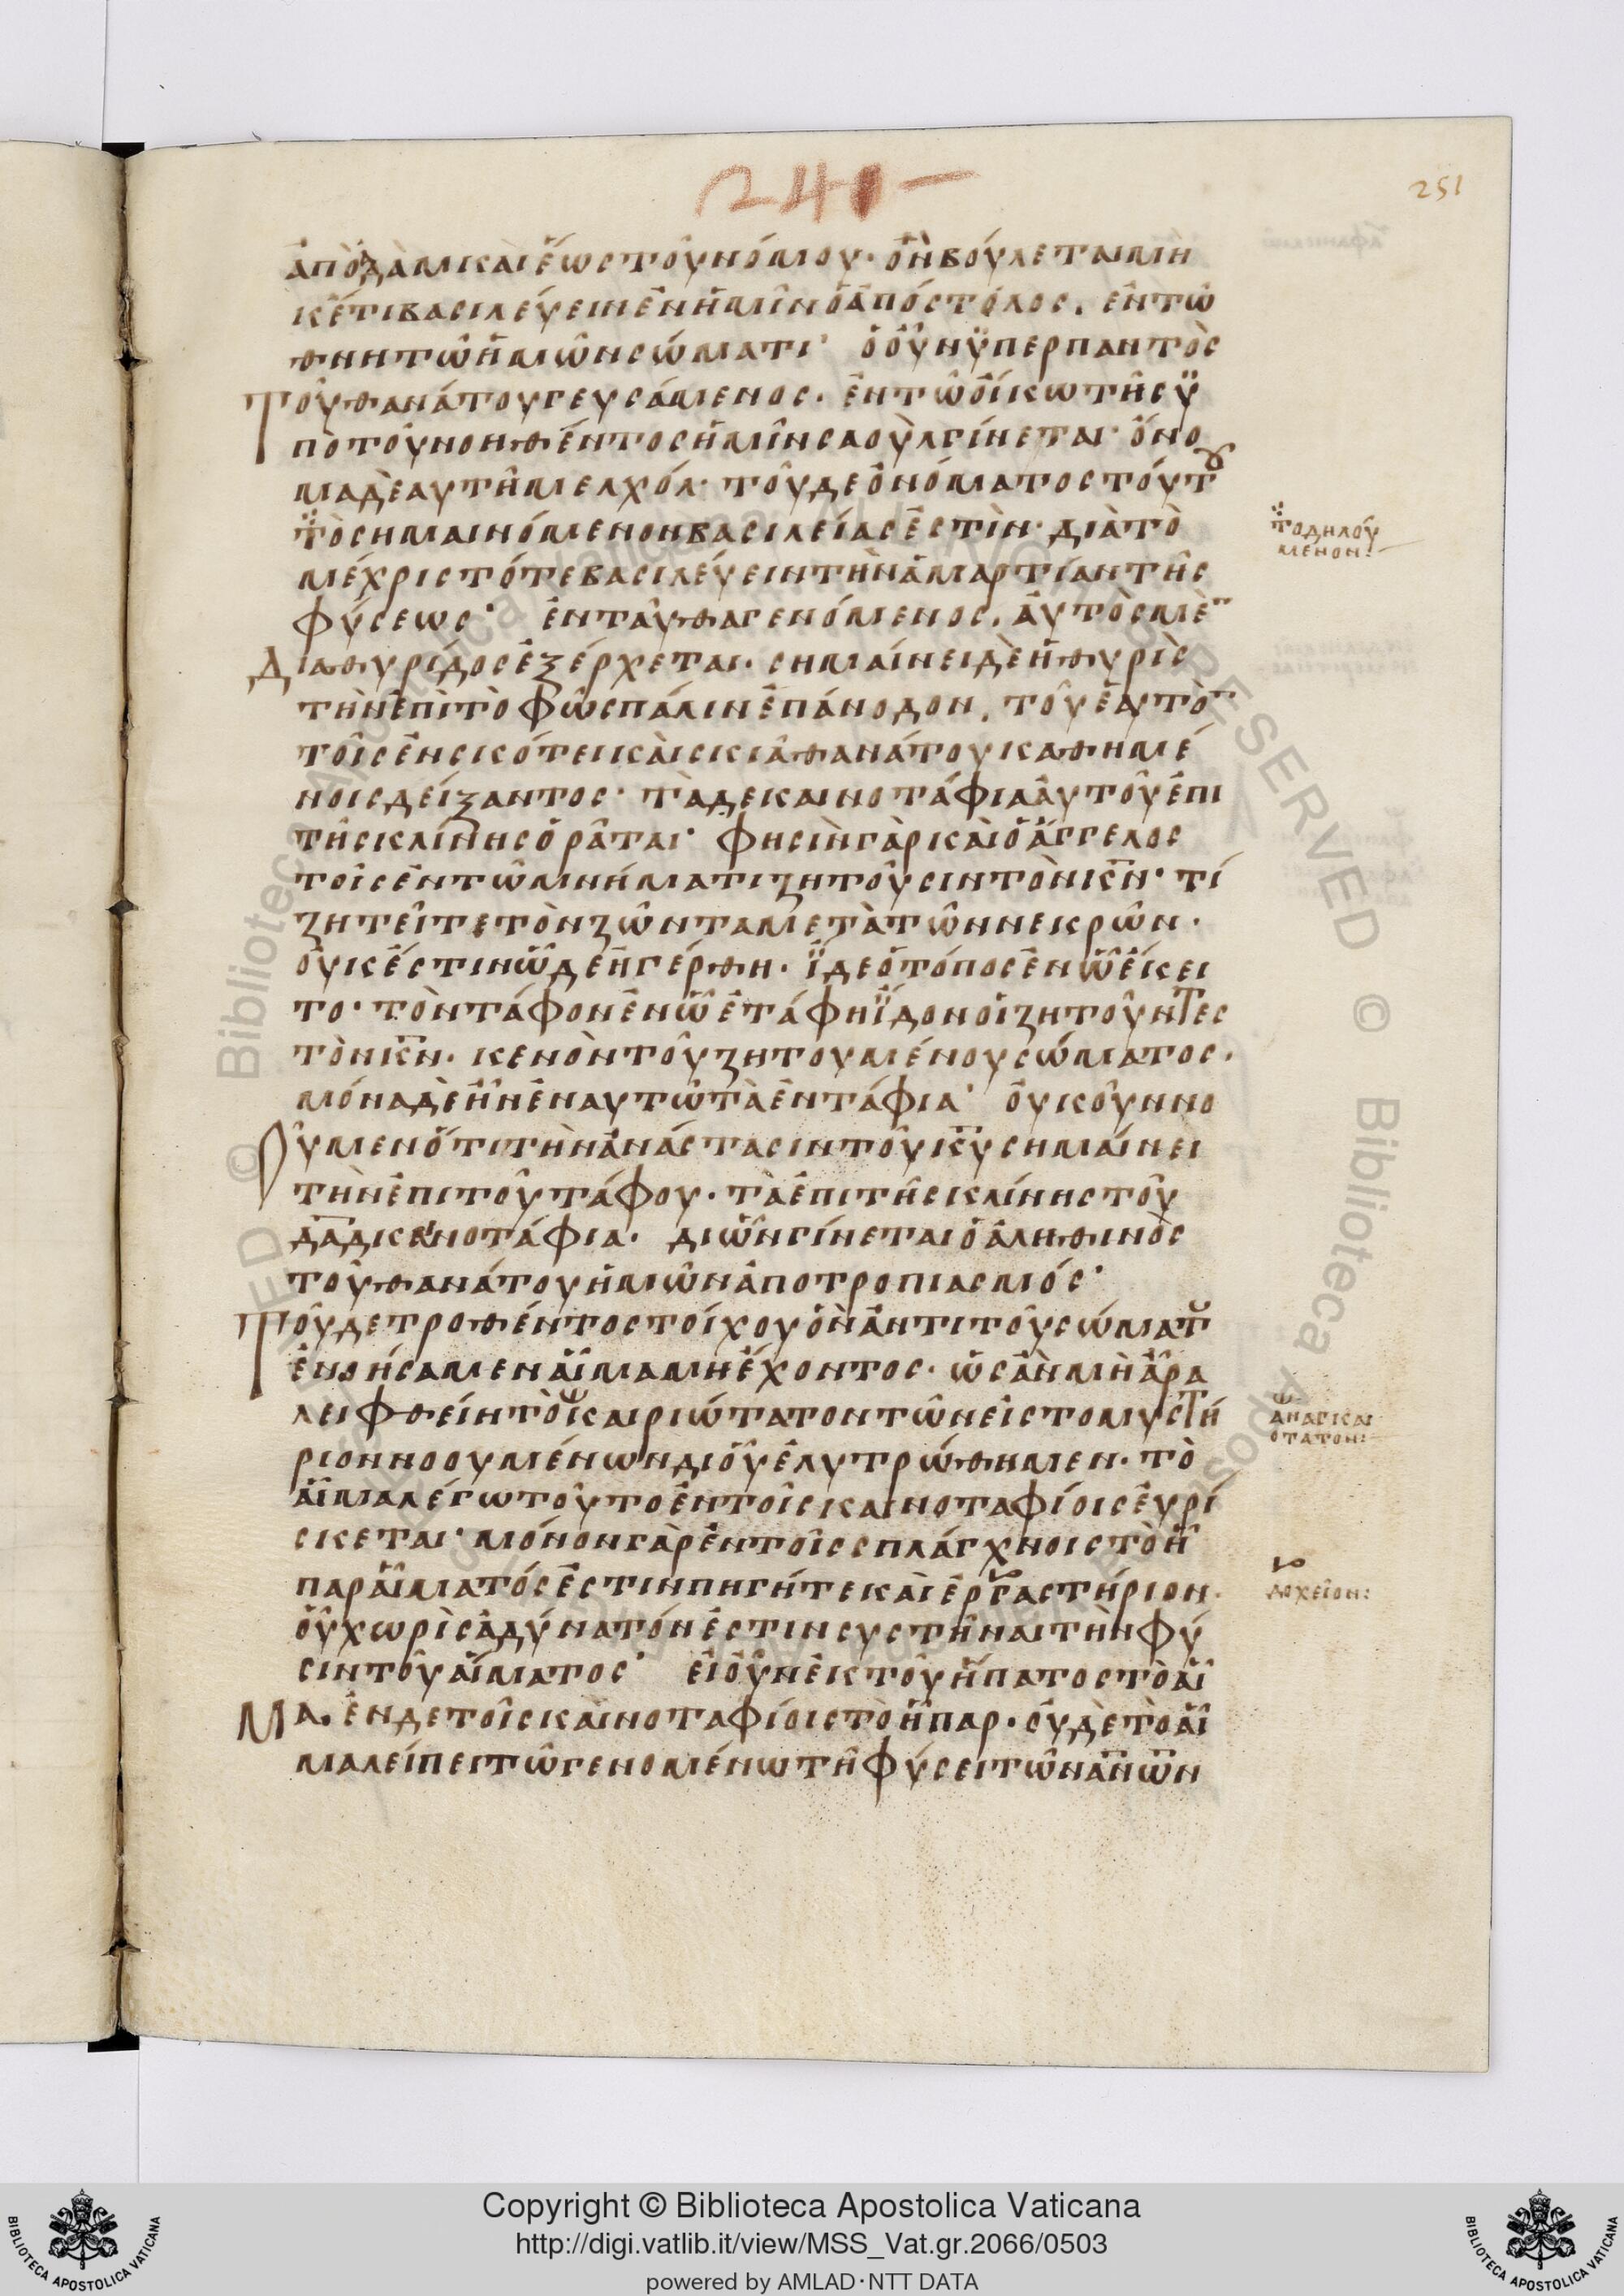 241-
251
ἀπὸ ἀδὰμ καὶ ἕως τοῦ νόμου· ὃν βούλεται μη
κέτι βασιλεύειν ἐν ἡμῖν ὁ ἀπόστολος, ἐν τῶ
θνητῶ ἡμῶν σώματι· ὁ οὖν ὑπερ παντὸς
τοῦ θανάτου γευσάμενος. ἐν τῶ οἴκω τῆς ὑ
πὸ τοῦ νοηθέντος ἡμῖν σαοὺλ γίνεται· ὄνο
μα δὲ αυτῆ μελχόλ· τοῦ δε ὀνόματος τούτου
τὸ σημαινόμενον βασιλείας ἐστὶν· διὰ τὸ
μέχρις τότε βασιλεύειν τὴν ἁμαρτίαν τῆς
φύσεως· ἐνταῦθα γενόμενος, ἀυτὸς μὲν
δια θυρίδος ἐξέρχεται. σημαίνει δὲ ἡ θυρὶς
τὴν ἐπὶ τὸ φῶς πάλιν ἐπάνοδον, τοῦ ἑαυτὸν
τοῖς ἐν σκότει καὶ σκιᾶ θανάτου καθημέ
νοις δείξαντος· τὰ δε καινοτάφια ἀυτοῦ ἐπι
τῆς κλίνης ὁρᾶται· φησὶν γὰρ καὶ ὁ ἄγγελος
τοῖς ἐν τῶ μνήματι ζητοῦσιν τὸν κν· τί
ζητεῖτε τὸν ζῶντα μετὰ τῶν νεκρῶν.
οὐκ ἔστιν ὧδε ἠγέρθη. ἴδε ὁ τόπος ἐν ὧ ἔκει
το· τὸν τάφον ἐν ὧ ἐτάφη ἴδον οἱ ζητοῦντες
τὸν κν. κενὸν τοῦ ζητουμένου σώματος.
μόνα δὲ ἦν ἐν αυτῶ τὰ ἐντάφια· οὐκοῦν νο
οῦμεν ὅτι τὴν ἀνάστασιν τοῦ κυ σημαίνει
τὴν ἐπι τοῦ τάφου. τὰ ἐπι τῆς κλίνης τοῦ
δαδ κενοτάφια. δι ὧν γίνεται ὁ ἀληθινὸς
τοῦ θανάτου ἡμῶν ἀποτροπιασμός·
τοῦ δε τροθέντος τοίχου ὃν ἀντι τοῦ σώματος
ἐνοήσαμεν αἷμα μὴ ἔχοντος. ὡς ἂν μὴ ἄρα
λειφθείη τὸ καιριώτατον τῶν εἰς το μυστή
ριον νοουμένων δι οὗ ἐλυτρώθημεν. τὸ
αἷμα λέγω τοῦτο ἐν τοῖς καινοταφίοις ἑυρί
σκεται· μόνον γὰρ ἐν τοῖς σπλάγχνοις τὸ ἧ
παρ αἵματός ἐστιν πηγή τε καὶ ἐργαστήριον.
οὗ χωρὶς ἀδύνατόν ἐστιν συστῆναι τὴν φύ
σιν τοῦ αἵματος· εἰ οὖν ἐκ τοῦ ἥπατος τὸ αἷ
μα. ἐν δε τοῖς καὶνοταφίοις τὸ ἧπαρ. οὐδὲ τὸ αἷ
μα λείπει τῶ γενομένω τῆ φύσει τῶν ανων
το δηλού
μενον:
αναγκαι
οτατον:
δοχεῖον:
Copyright © Biblioteca Apostolica Vaticana
http://digi.vatlib.it/view/MSS_Vat.gr.2066/0503
powered by AMLAD·NTT DATA